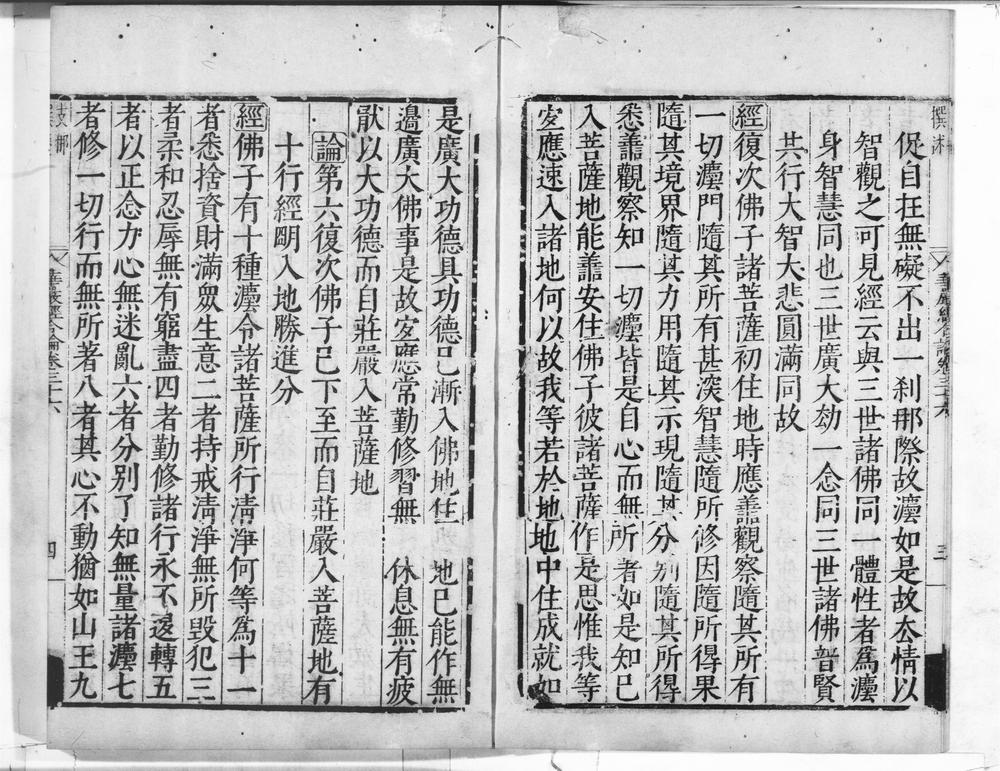 促自在無礙不出一刹那際故灋如是故𠫤情以
智觀之可見經云與三世諸佛同一體性者爲灋
身智慧同也三世廣大劫一念同三世諸佛普賢
其行大智大悲圓滿同故
經復次佛子諸菩薩初住地時應善觀察隨其所有
一切灋門隨其所有甚深智慧隨所修因隨所得果
隨其境界隨其力用隨其示現隨其分別隨其所得
悉善觀察知一切灋皆是自心而無所著如是知已
入菩薩地能善安住佛子彼諸菩薩作是思惟我等
宜應速入諸地何以故我等若於地地中住成就如
三
是廣大功德具功德已漸入佛地住 地已能作無
邊廣大佛事是故宜應常勤修習無 休息無有疲
猒以大功德而自莊嚴入菩薩地
論第六復次佛子已下至而自莊嚴入菩薩地有
十行經明入地勝進分
經佛子有十種灋令諸菩薩所行清淨何等爲十一
者悉捨資財滿衆生意二者持戒清淨無所毀犯三
者柔和忍辱無有窮盡四者勤修諸行永不退轉五
者以正念力心無迷亂六者分別了知無量諸灋七
者修一切行而無所著八者其心不動猶如山王九
華嚴經合論卷三十六
四